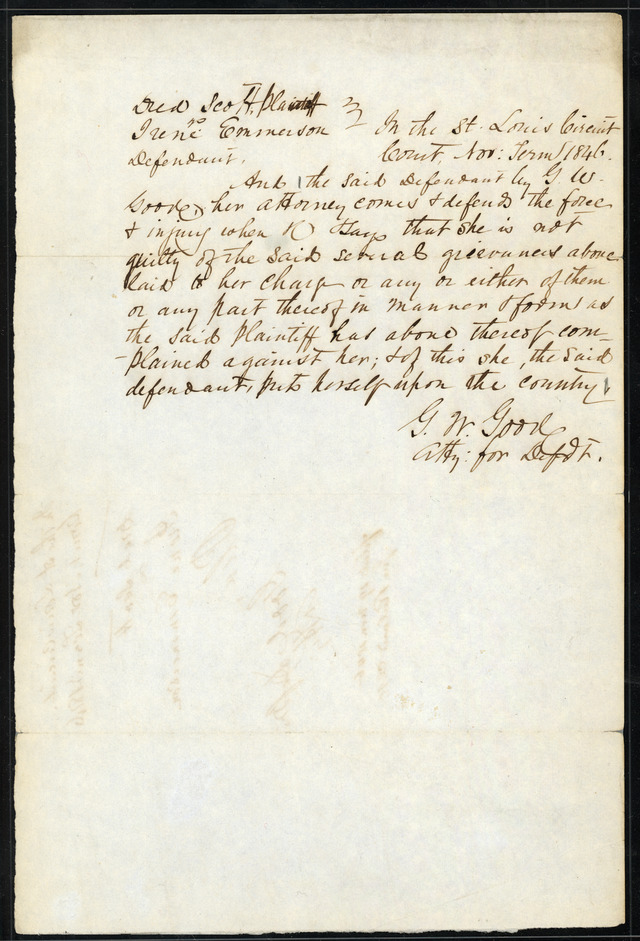 Dred Scott, Plaintiff
vs
Irene Emmerson
Defendant.
In the St. Louis Circuit
Court, Nov: Term 1846.
And the said Defendant by G. W.
Goode, her attorney comes & defends the force
& injury when &c & says that she is not
guilty of the said several grievances above
laid to her charge or any or either of them
or any part thereof in manner & form as
the said Plaintiff has above thereof com-
-plained against her; & of this she, the said
defendant, puts herself upon the country
G. W. Goode
Atty: for Defdt.